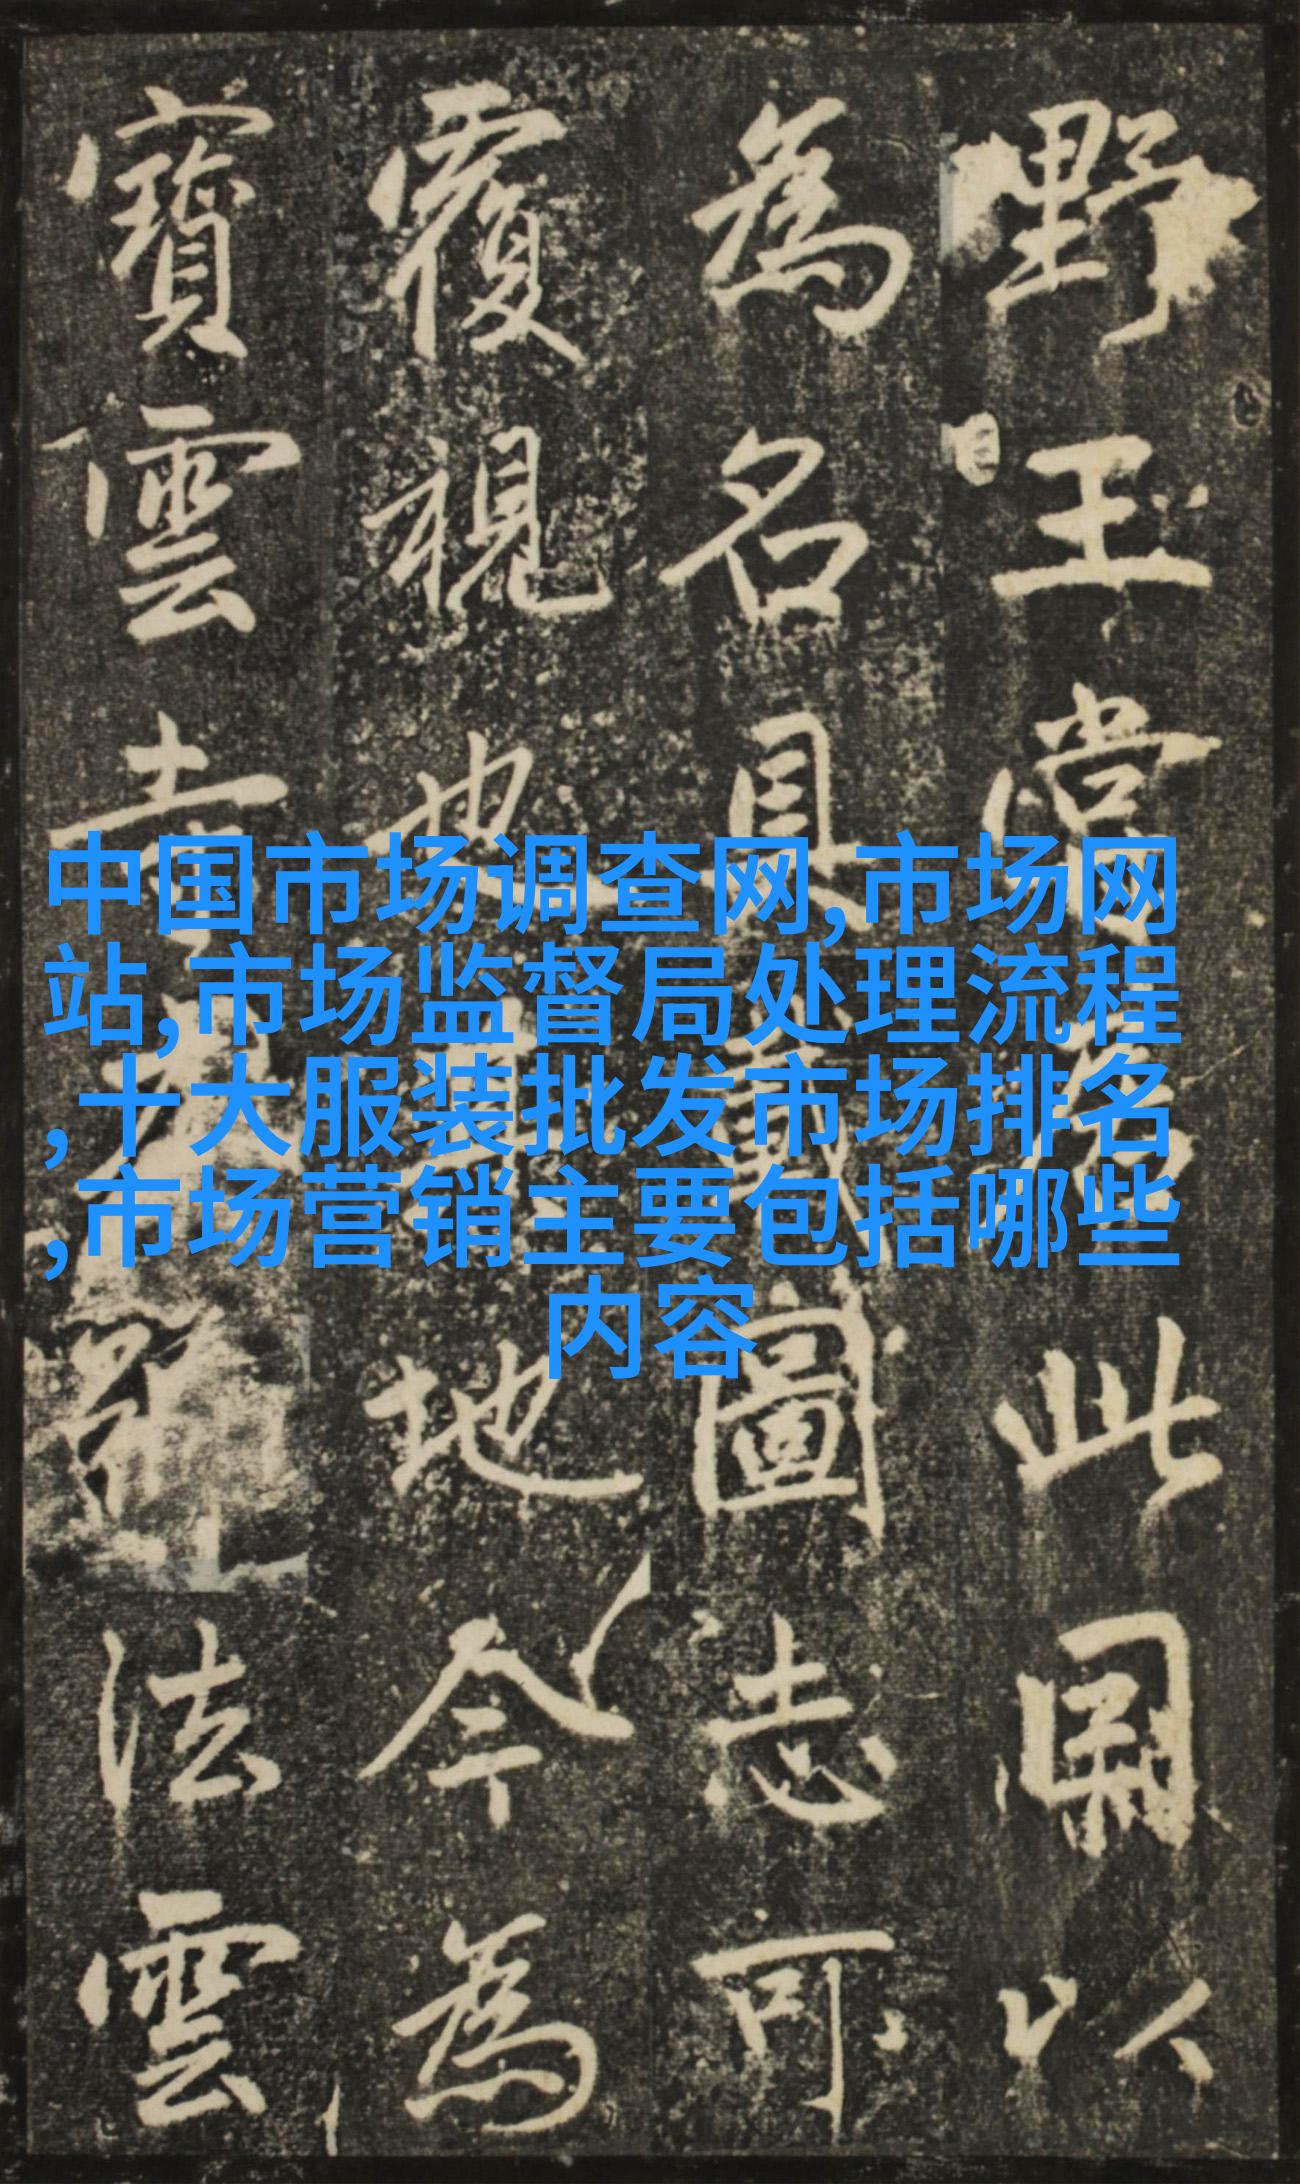 野王嘗此以
為名具載圖志可
覆視也其地今為
寶雲寺法雲
中国市场调查网,市场网
站,市场监督局处理流程
,十大服装批发市场排名
,市场营销主要包括哪些
内容